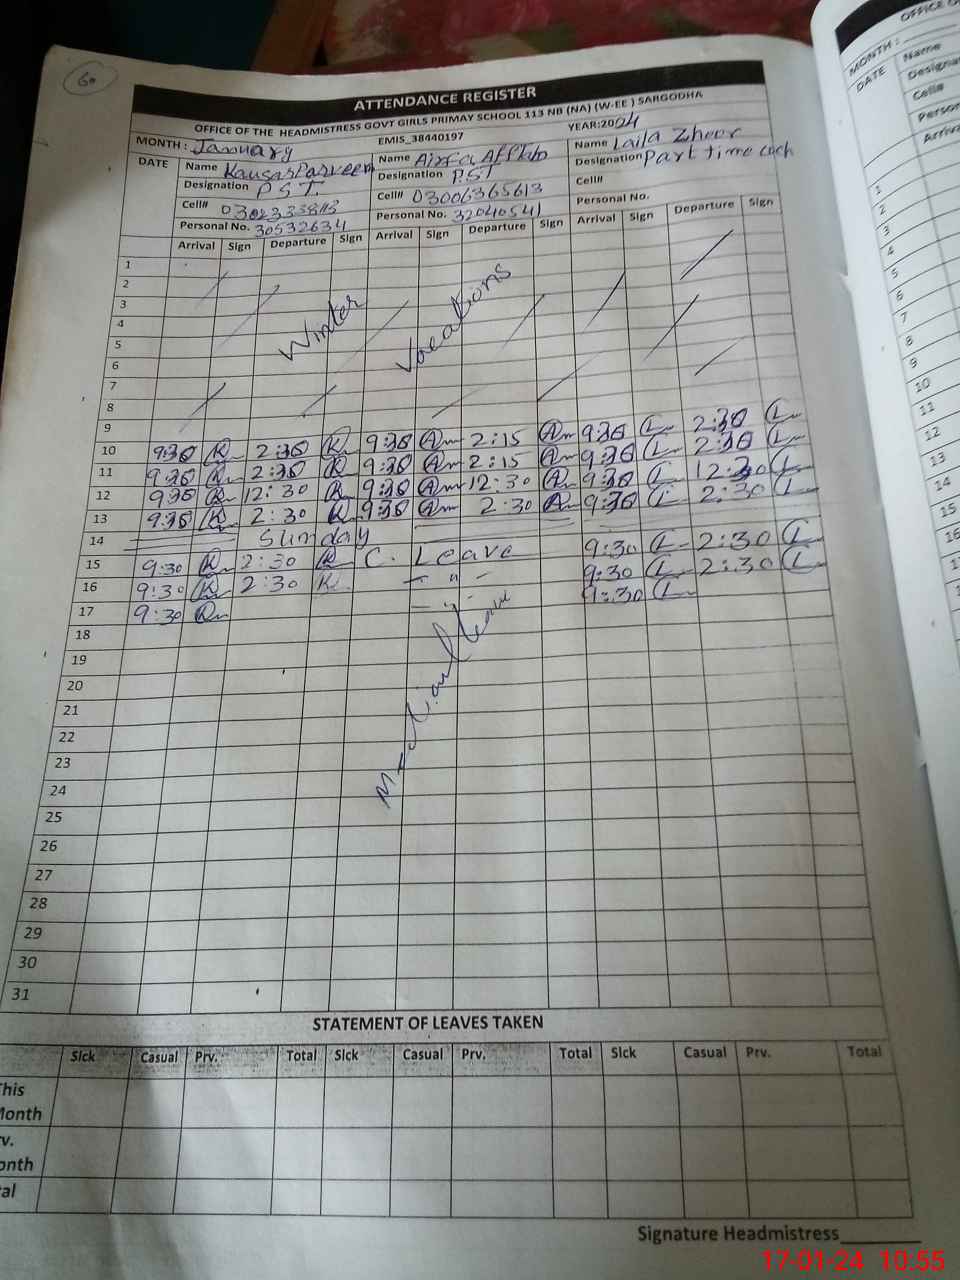 60
ATTENDANCE REGISTER
OFFICE OF THE HEADMISTRESS GOVT GIRLS PRIMAY SCHOOL 113 NB (NA) (W-EE ) SARGODHA
MONTH : January EMIS_38440197 YEAR:2024
DATE Name Kausar Parveen Name Name Laila Zhoor
Designation P.S.T. Designation P.ST Designation Part time
Cell# Cell# 03006365613 Cell#
Personal No. 30532634 Personal No. 32040541 Personal No.
Arrival Sign Departure Sign Arrival Sign Departure Sign Arrival Sign Departure Sign
1
2
3 Winter Vacations
4
5
6
7
8
9
10 9:30 2:30 9:30 Am 2:15 Am 9:30 L 2:30 L
11 9:30 2:30 9:30 Am 2:15 A 9:30 L 2:30 L
12 9:30 12:30 9:30 Am 12:30 A 9:30 L 12:30 L
13 9:30 2:30 9:30 Am 2:30 A 9:30 L 2:30 L
14 Sunday
15 9:30 2:30 C. Leave 9:30 L 2:30 L
16 9:30 2:30 - " - 9:30 L 2:30 L
17 9:30 - " - 9:30 L
18
19
20
21
22
23
24
25
26
27
28
29
30
31
STATEMENT OF LEAVES TAKEN
Sick Casual Prv. Total Sick Casual Prv. Total Sick Casual Prv. Total
This
Month
Signature Headmistress
17-01-24 10:55
OFFICE
MONTH :
DATE Name
Cell#
1
2
3
4
5
6
7
8
9
10
11
12
13
14
15